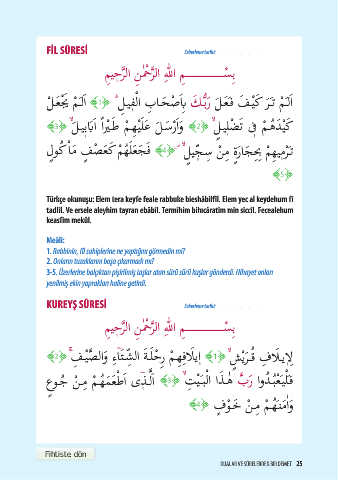 FİL SÛRESİ
بِسْــــــــــمِ اللّٰهِ الرَّحْمٰنِ الرَّحٖيمِ
اَلَمْ تَرَ كَيْفَ فَعَلَ رَبُّكَ بِاَصْحَابِ الْفٖيلِ ﴿١﴾ اَلَمْ يَجْعَلْ
كَيْدَهُمْ فٖى تَضْلٖيلٍ ﴿٢﴾ وَاَرْسَلَ عَلَيْهِمْ طَيْرًا اَبَابٖيلَ ﴿٣﴾
تَرْمٖيهِمْ بِحِجَارَةٍ مِنْ سِجّٖيلٍ ﴿٤﴾ فَجَعَلَهُمْ كَعَصْفٍ مَاْكُولٍ
﴿٥﴾
Türkçe okunuşu: Elem tera keyfe feale rabbuke bieshâbilfîl. Elem yec al keydehum fî
tadlîl. Ve ersele aleyhim tayran ebâbîl. Termîhim bihıcâratim min siccîl. Fecealehum
keasfim mekûl.
Meâli:
1. Rabbinin, fil sahiplerine ne yaptığını görmedin mi?
2. Onların tuzaklarını boşa çıkarmadı mı?
3-5. Üzerlerine balçıktan pişirilmiş taşlar atan sürü sürü kuşlar gönderdi. Nihayet onları
yenilmiş ekin yaprakları haline getirdi.
KUREYŞ SÛRESİ
بِسْــــــــــمِ اللّٰهِ الرَّحْمٰنِ الرَّحٖيمِ
لِاٖيلَافِ قُرَيْشٍ ﴿١﴾ اٖيلَافِهِمْ رِحْلَةَ الشِّتَٓاءِ وَالصَّيْفِ ﴿٢﴾
فَلْيَعْبُدُوا رَبَّ هٰذَا الْبَيْتِ ﴿٣﴾ اَلَّذٖٓى اَطْعَمَهُمْ مِنْ جُوعٍ
وَاٰمَنَهُمْ مِنْ خَوْفٍ ﴿٤﴾
Fihriste dön
25